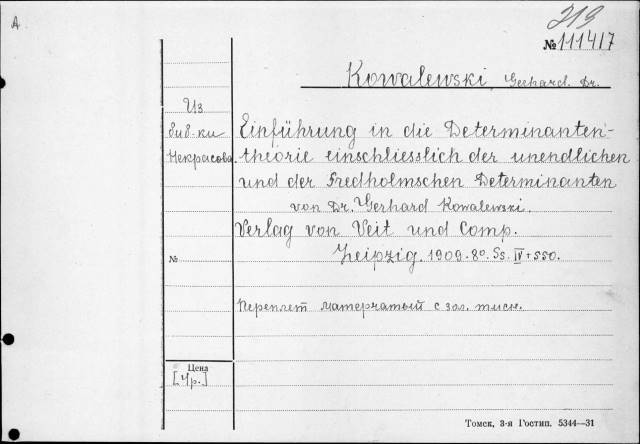 A
313
№111417
Kowalewski Gerhard Dr.
Из
биб-ки
Некрасова.
Einführung in die Determinanten-
theorie einschliesslich der unendlichen
und der Fredholmschen Determinanten
von Dr. Gerhard Kowalewski.
Verlag von Veit und Comp.
Leipzig. 1909. 8º. Ss. IV + 550.
№
Переплет матерчатый с зол. тисн.
Цена
[4р.]
Томск, 3-я Гостип. 5344—31